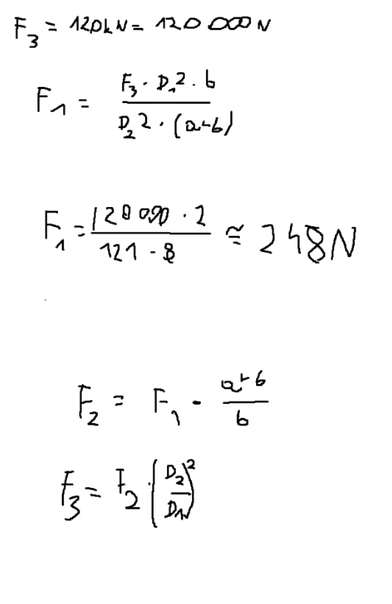 F₃ = 120kN = 120 000 N
F₁ = F₃ · D₁² · b / D₂² · (a+b)
F₁ = 120 000 · 2 / 121 · 8 ≅ 248N
F₂ = F₁ · a+b / b
F₃ = F₂ · (D₂/D₁)²